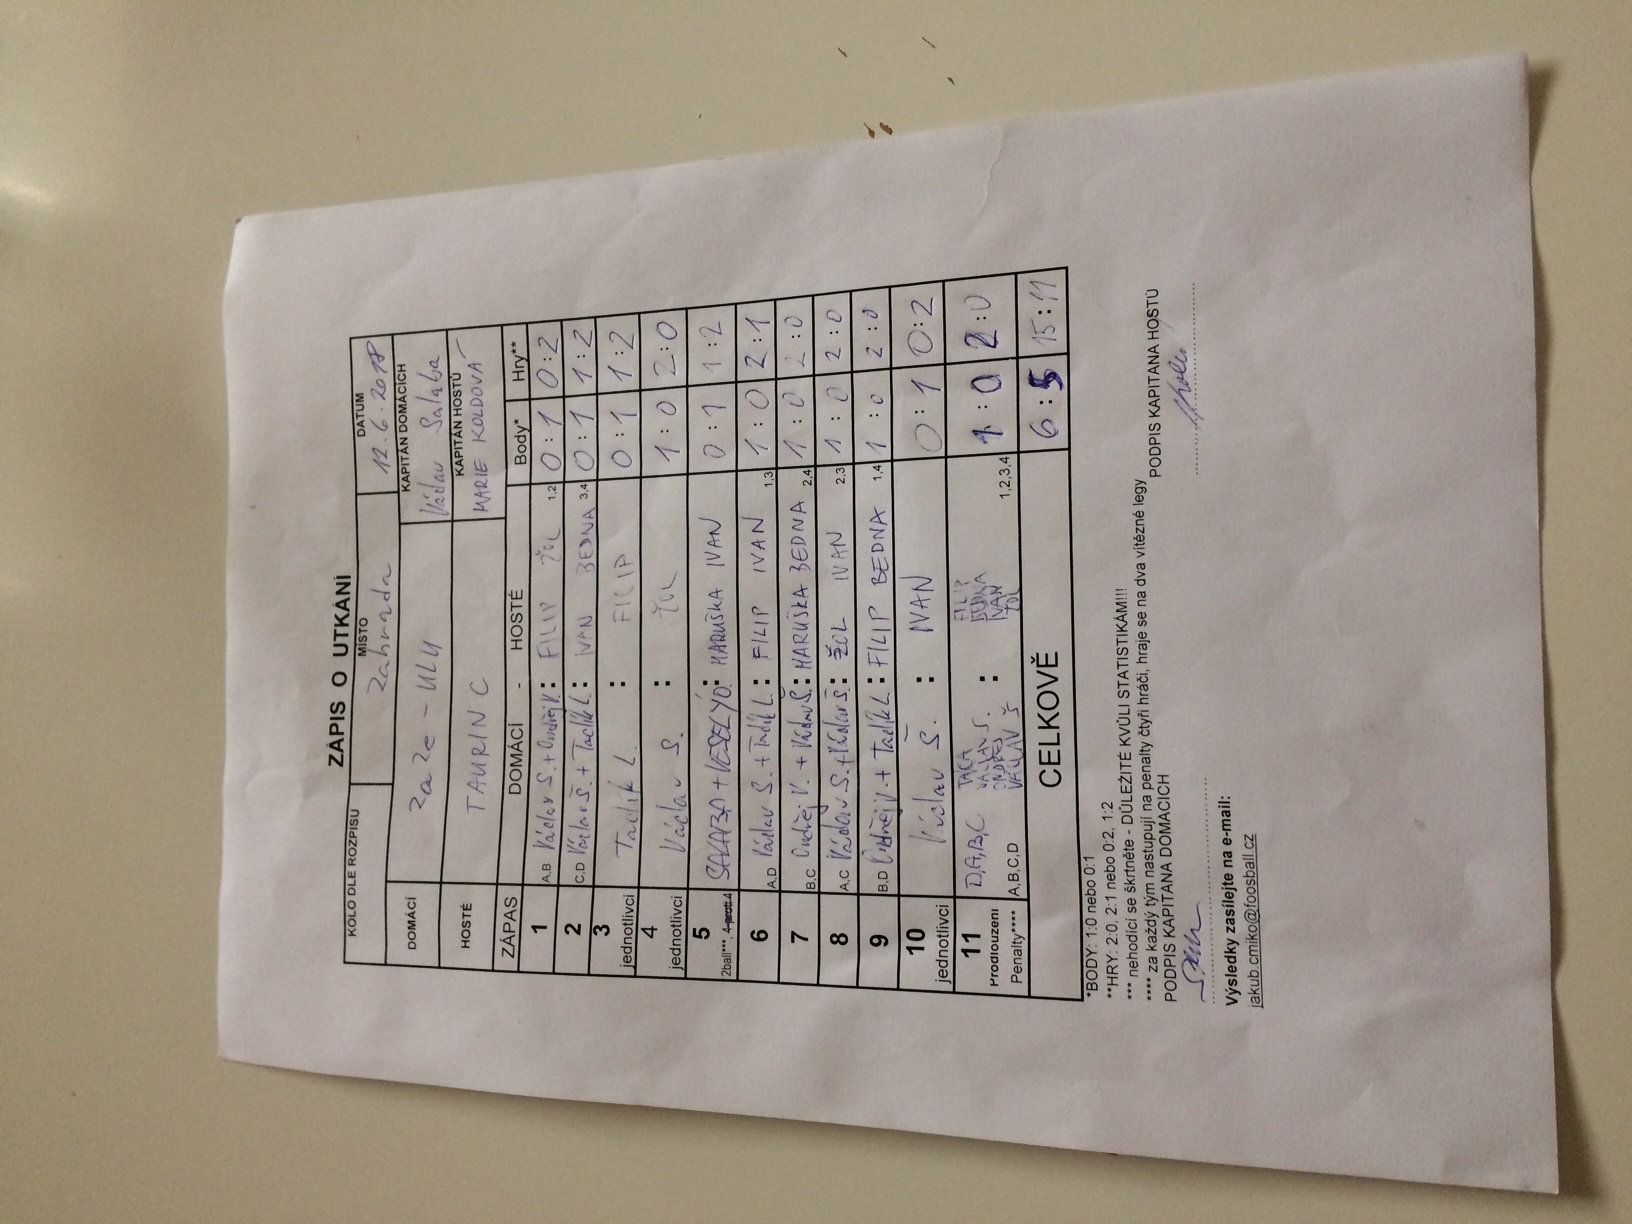 ZÁPIS O UTKÁNÍ
KOLO DLE ROZPISU MÍSTO DATUM
Zahrada 12.6.2018
DOMÁCÍ ZaZe - ULU KAPITÁN DOMÁCÍCH
Václav Salaba
HOSTÉ TAURIN C KAPITÁN HOSTŮ
MARIE KOLDOVÁ
ZÁPAS DOMÁCÍ - HOSTÉ Body* Hry**
1 A,B Václav S. + Ondřej V. : FILIP ŽOL 1,2 0:1 0:2
2 C,D Václav Š. + Tadík L. : IVAN BEDNA 3,4 0:1 1:2
3 jednotlivci Tadík L. : FILIP 0:1 1:2
4 jednotlivci Václav S. : ŽOL 1:0 2:0
5 2ball***, 4 proti 4 SALABA + VESELÝ O. : MARUŠKA IVAN 0:1 1:2
6 A,D Václav S. + Tadík L. : FILIP IVAN 1,3 1:0 2:1
7 B,C Ondřej V. + Václav Š. : MARUŠKA BEDNA 2,4 1:0 2:0
8 A,C Václav S. + Václav Š. : ŽOL IVAN 2,3 1:0 2:0
9 B,D Ondřej V. + Tadík L. : FILIP BEDNA 1,4 1:0 2:0
10 jednotlivci Václav Š. : IVAN 0:1 0:2
11 D,A,B,C : FILIP 1:0 2:0
VÁCLAV S. BEDNA
Prodlouzeni IVAN
Penalty**** A,B,C,D VÁCLAV Š ŽOL 1,2,3,4
CELKOVĚ 6:5 15:11
*BODY: 1:0 nebo 0:1
**HRY: 2:0, 2:1 nebo 0:2, 1:2
*** nehodící se škrtněte - DŮLEŽITÉ KVŮLI STATISTIKÁM!!!
**** za každý tým nastupují na penalty čtyři hráči, hraje se na dva vítězné legy
PODPIS KAPITÁNA DOMÁCÍCH PODPIS KAPITÁNA HOSTŮ
Výsledky zasílejte na e-mail:
jakub.cmiko@foosball.cz